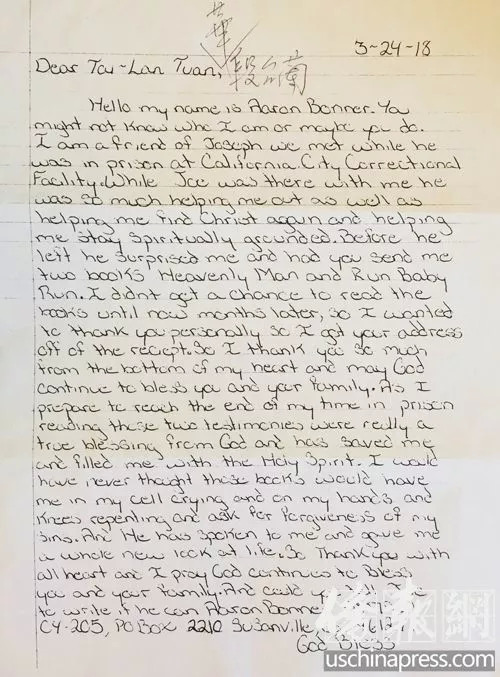 華
3-24-18
Dear Tai-Lan Tuan, 段台蘭
Hello my name is Aaron Bonner. You
might not know who I am or maybe you do.
I am a friend of Joseph we met while he
was in prison at California City Correctional
Facility. While Joe was there with me he
was so much helping me out as well as
helping me find Christ again and helping
me stay spiritually grounded. Before he
left he surprised me and had you send me
two books Heavenly Man and Run Baby
Run. I didnt get a chance to read the
books until now months later, so I wanted
to thank you personally so I got your address
off of the reciept. So I thank you so much
from the bottom of my heart and may God
continue to bless you and your family. As I
prepare to reach the end of my time in prison
reading these two testimonies were really a
true blessing from God and has saved me
and filled me with the Holy Spirit. I would
have never thought these books would have
me in my cell crying and on my hands and
knees repenting and ask for forgiveness of my
sins. And He has spoken to me and gave me
a whole new look at life. So Thank you with
all heart and I pray God continues to Bless
you and your family. And could you
to write if he can Aaron Bonner
C4-205, PO Box 2210 Susanville,
God Bless
僑報網
uschinapress.com